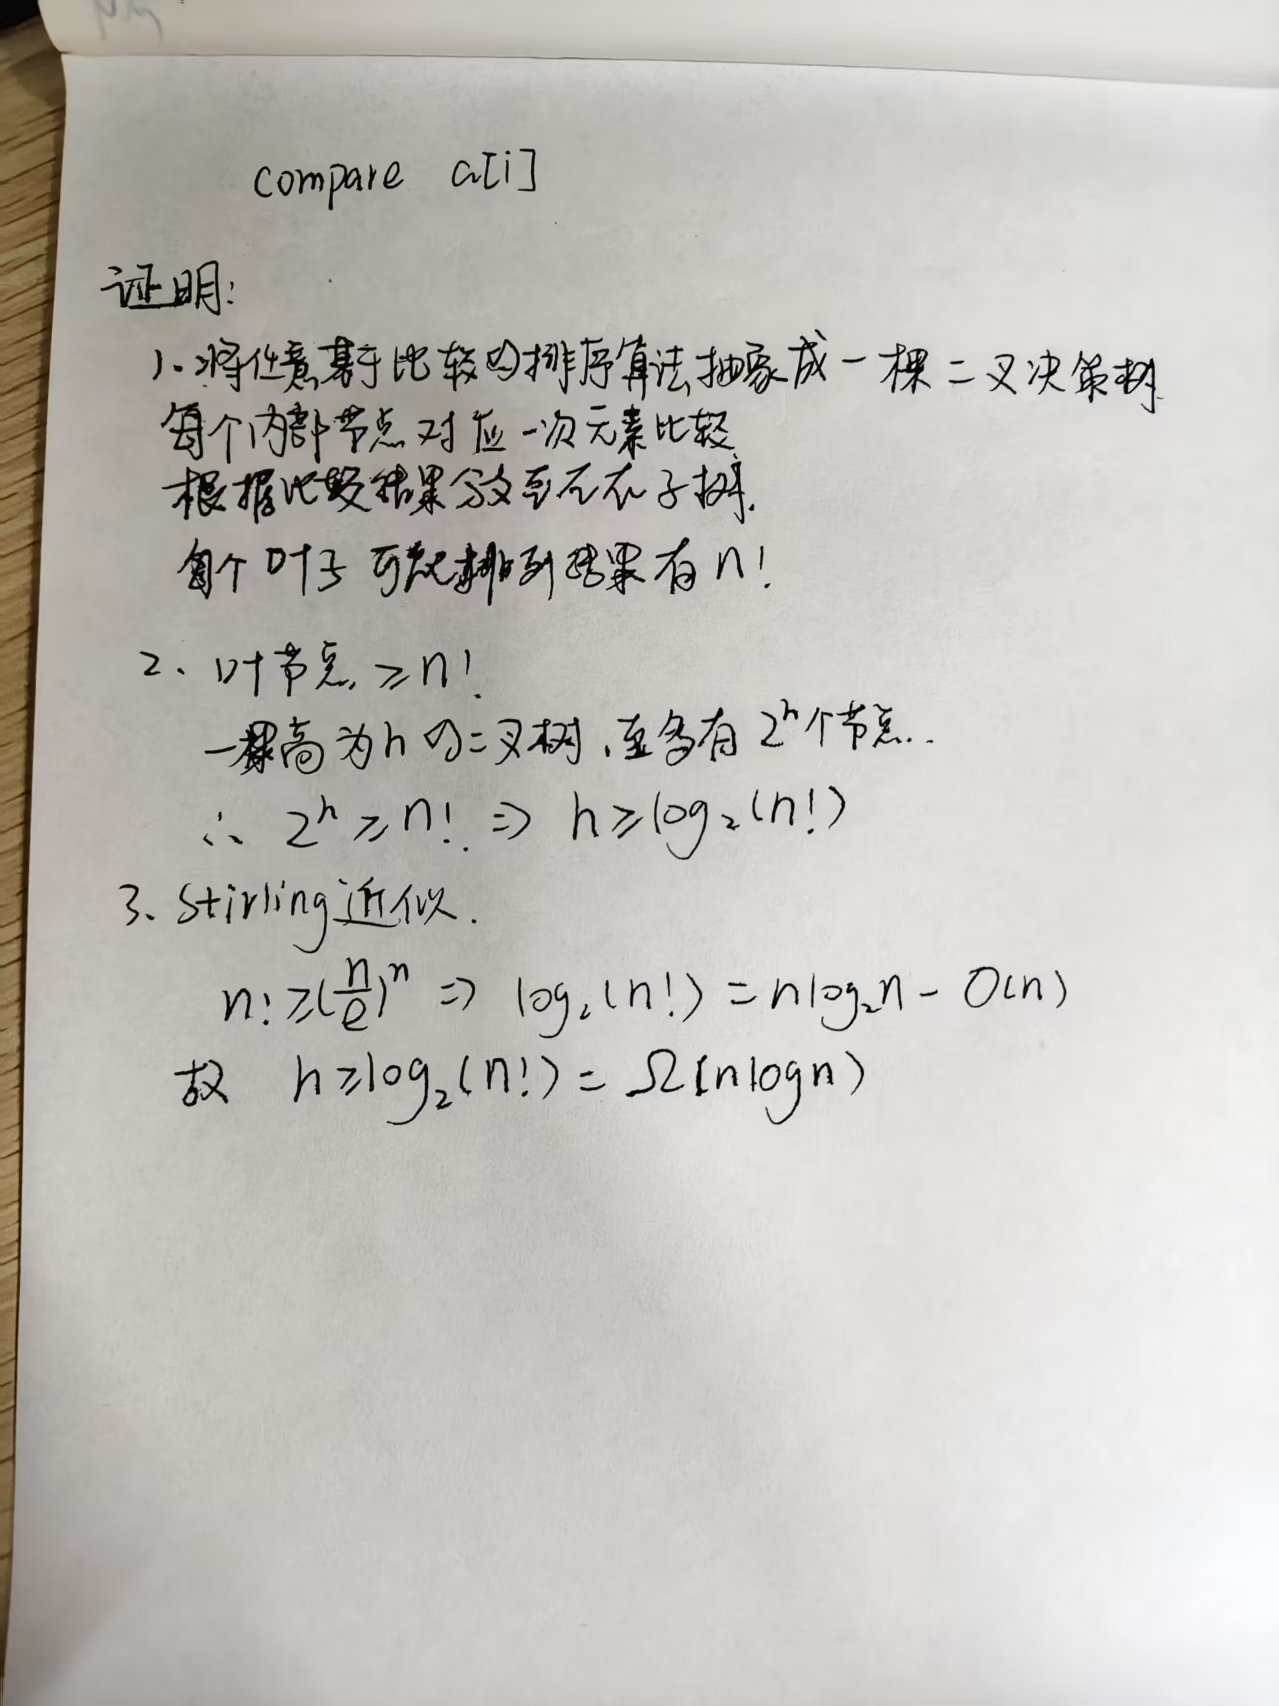 compare a[i]
证明:
1. 将任意基于比较的排序算法抽象成一棵二叉决策树
每个内部节点对应一次元素比较
根据比较结果分支至左右子树.
每个叶子可能排列结果有n!
2. 叶节点 ≥n!
一棵高为h的二叉树,至多有2^h个节点..
∴ 2^h ≥ n! ⇒ h ≥ log₂(n!)
3. Stirling近似.
n! ≥ (n/e)^n ⇒ log₂(n!) = nlog₂n - O(n)
故 h ≥ log₂(n!) = Ω(nlogn)